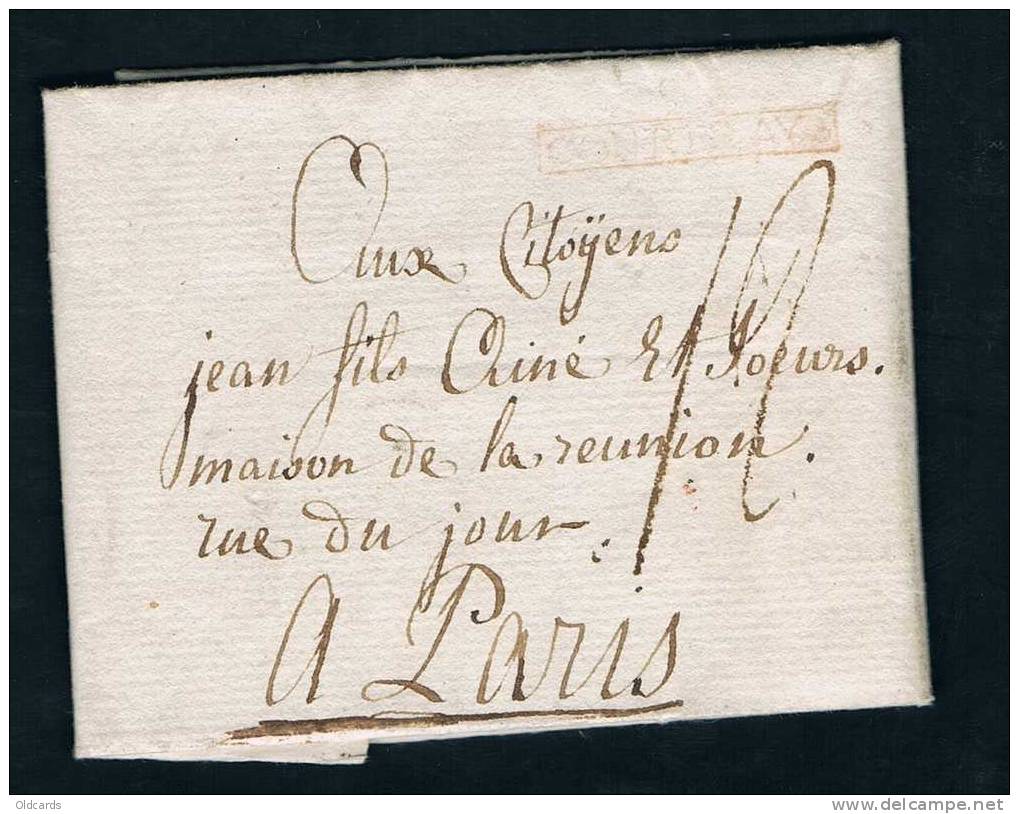 Aux Citoÿens
jean fils Ainé Et Soeurs.
maison de la reunion.
rue du jour.
A Paris
Oldcards
delcampe.net